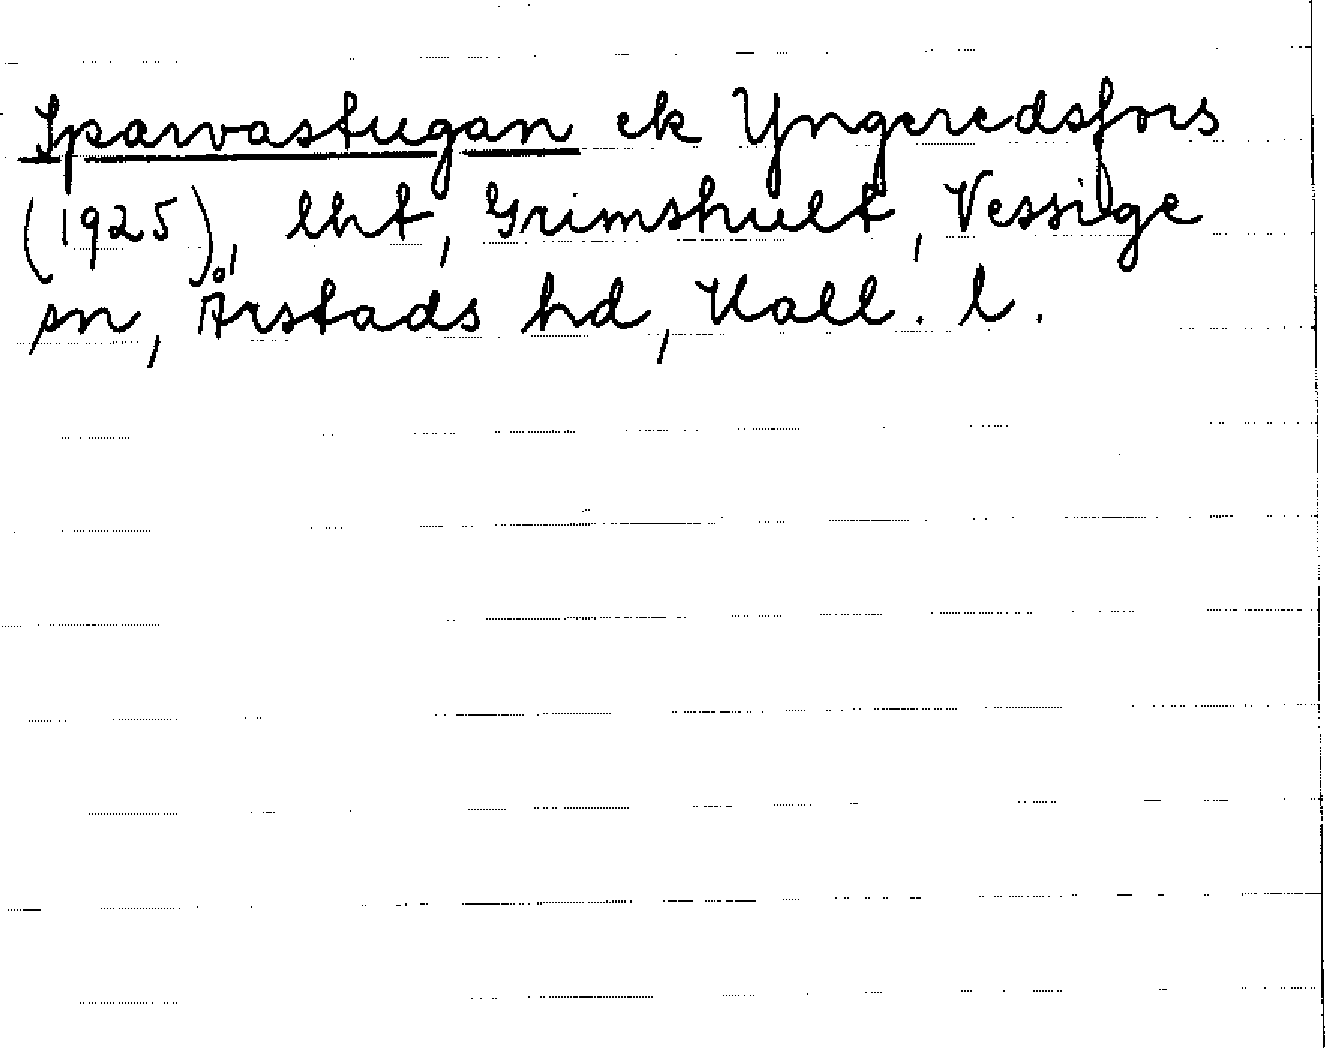 Sparvastugan ek Yngeredsfors
(1925), lht, Grimshult, Vessige
sn, Årstads hd, Hall. l.